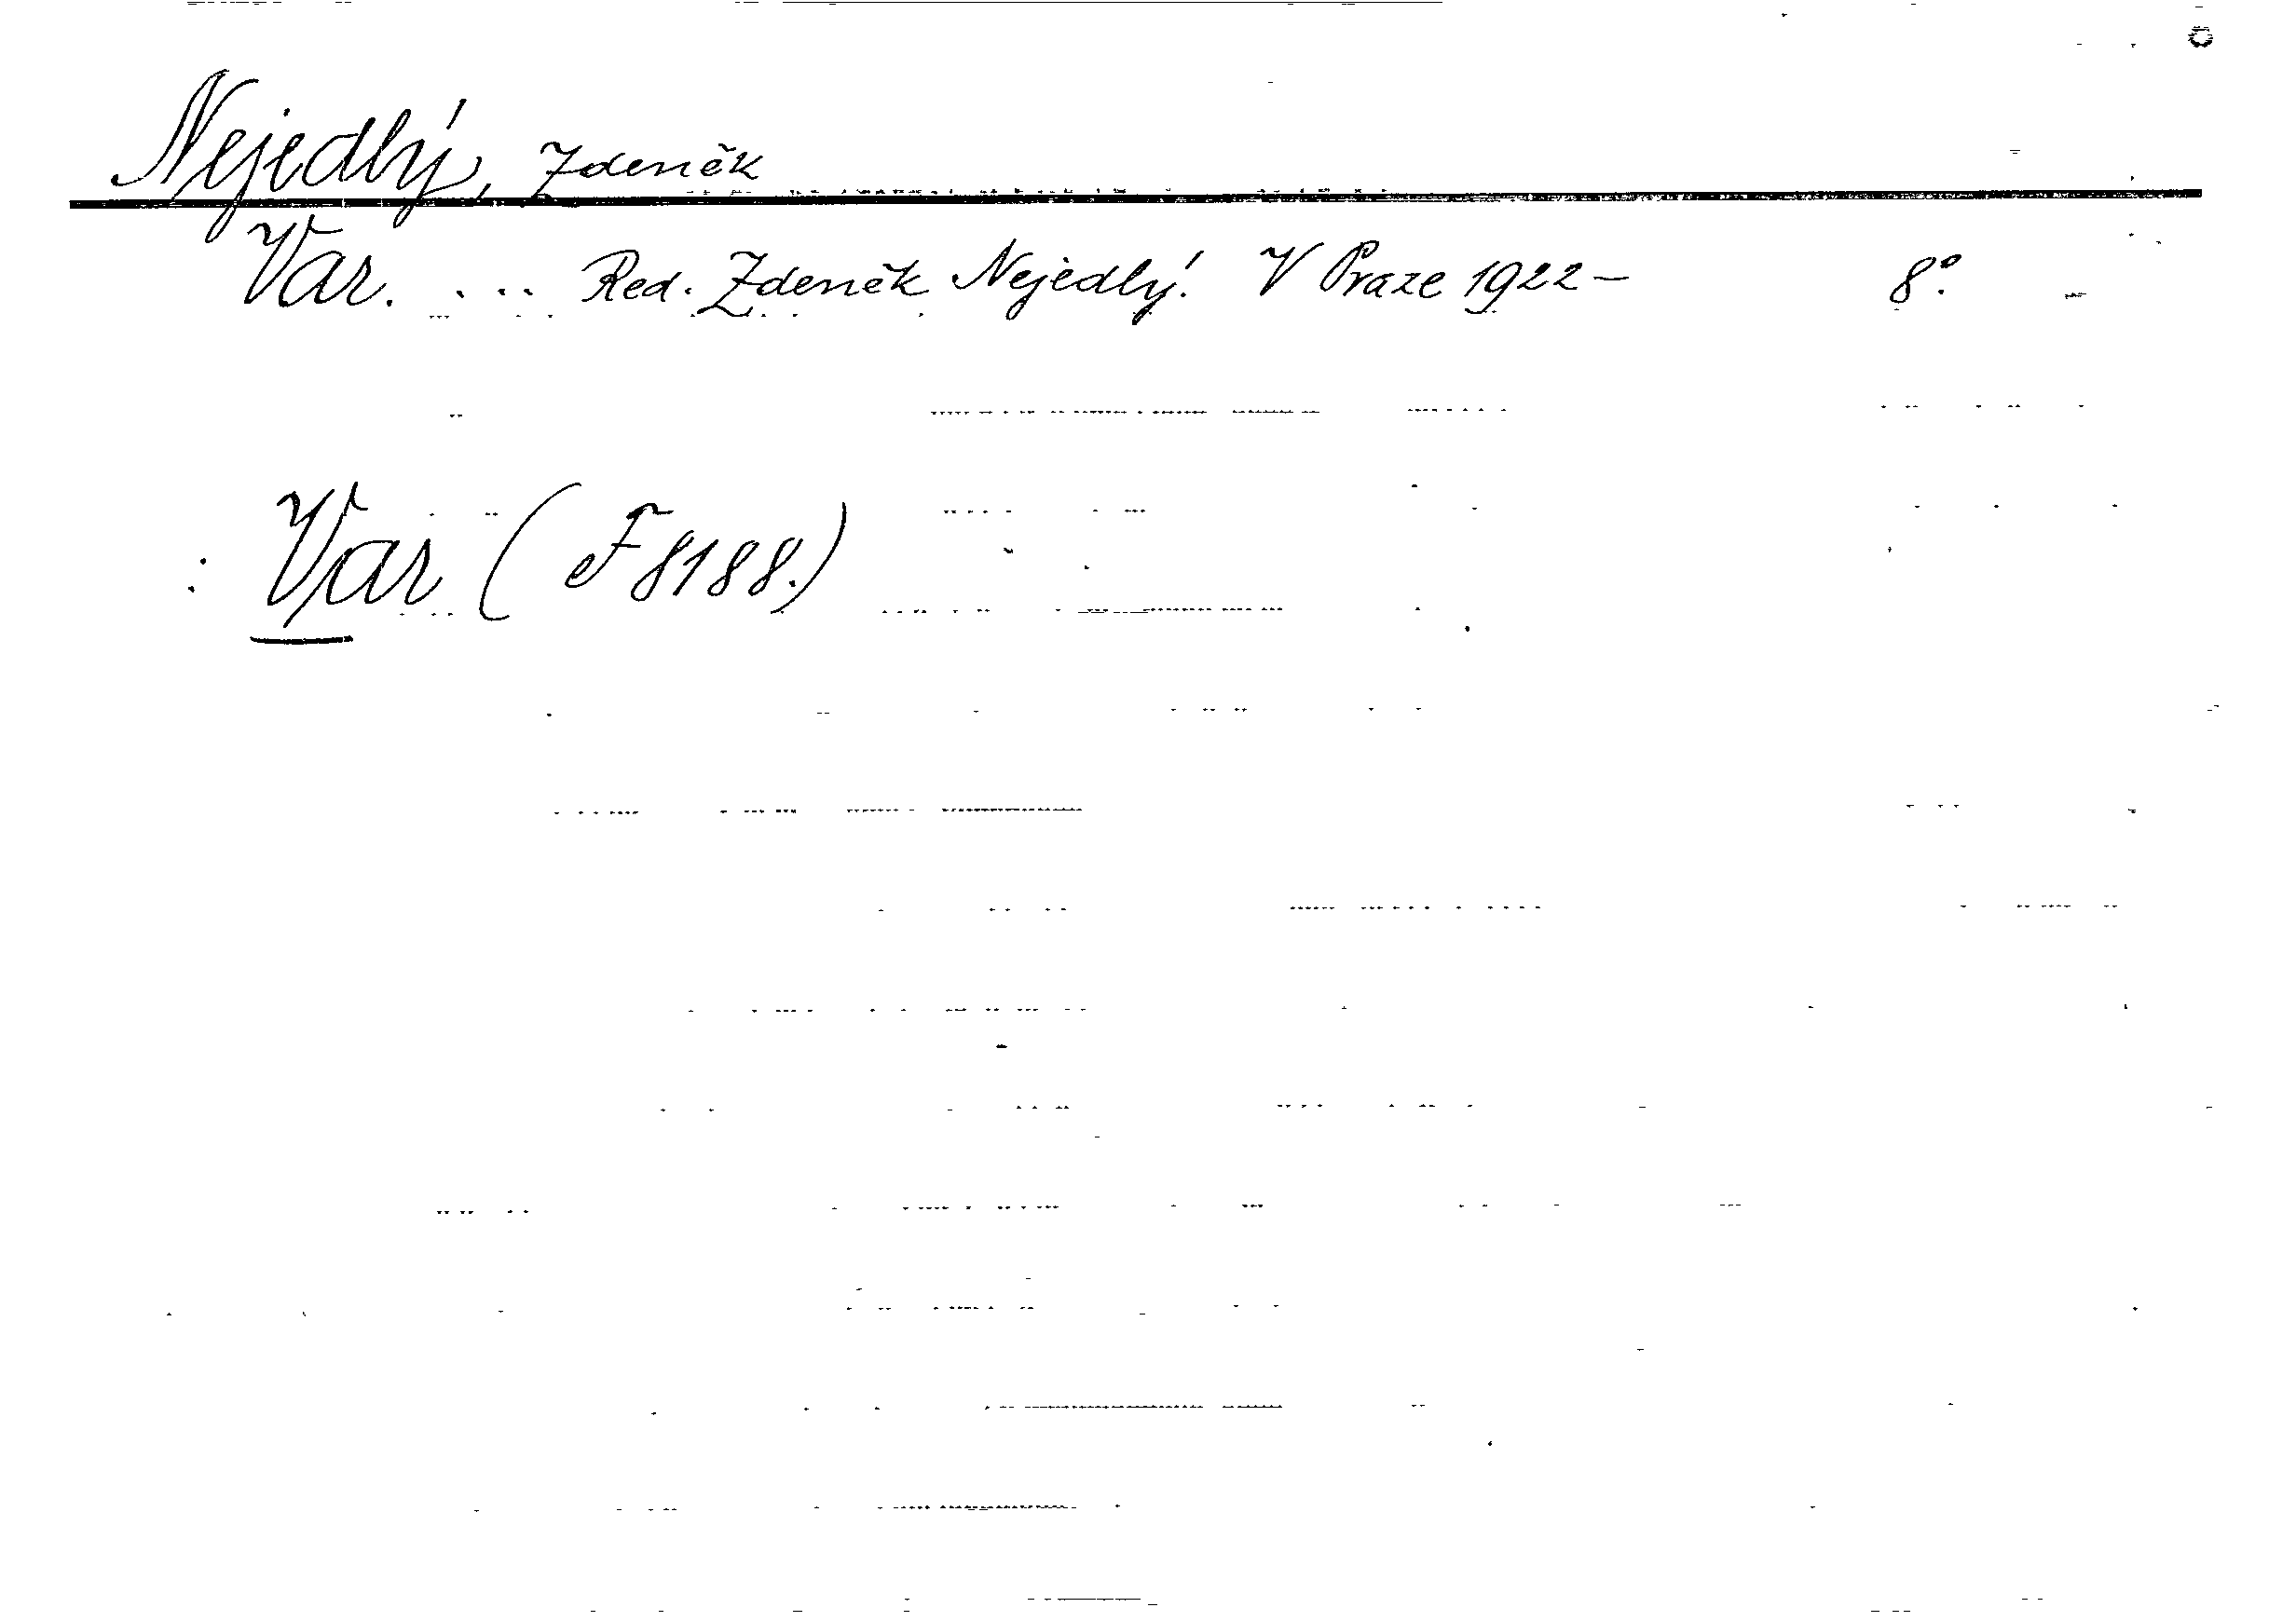 Nejedlý, Zdeněk
Var. . .. Red. Zdeněk Nejedlý. V Praze 1922– 8°.
: Var (F 8188.)